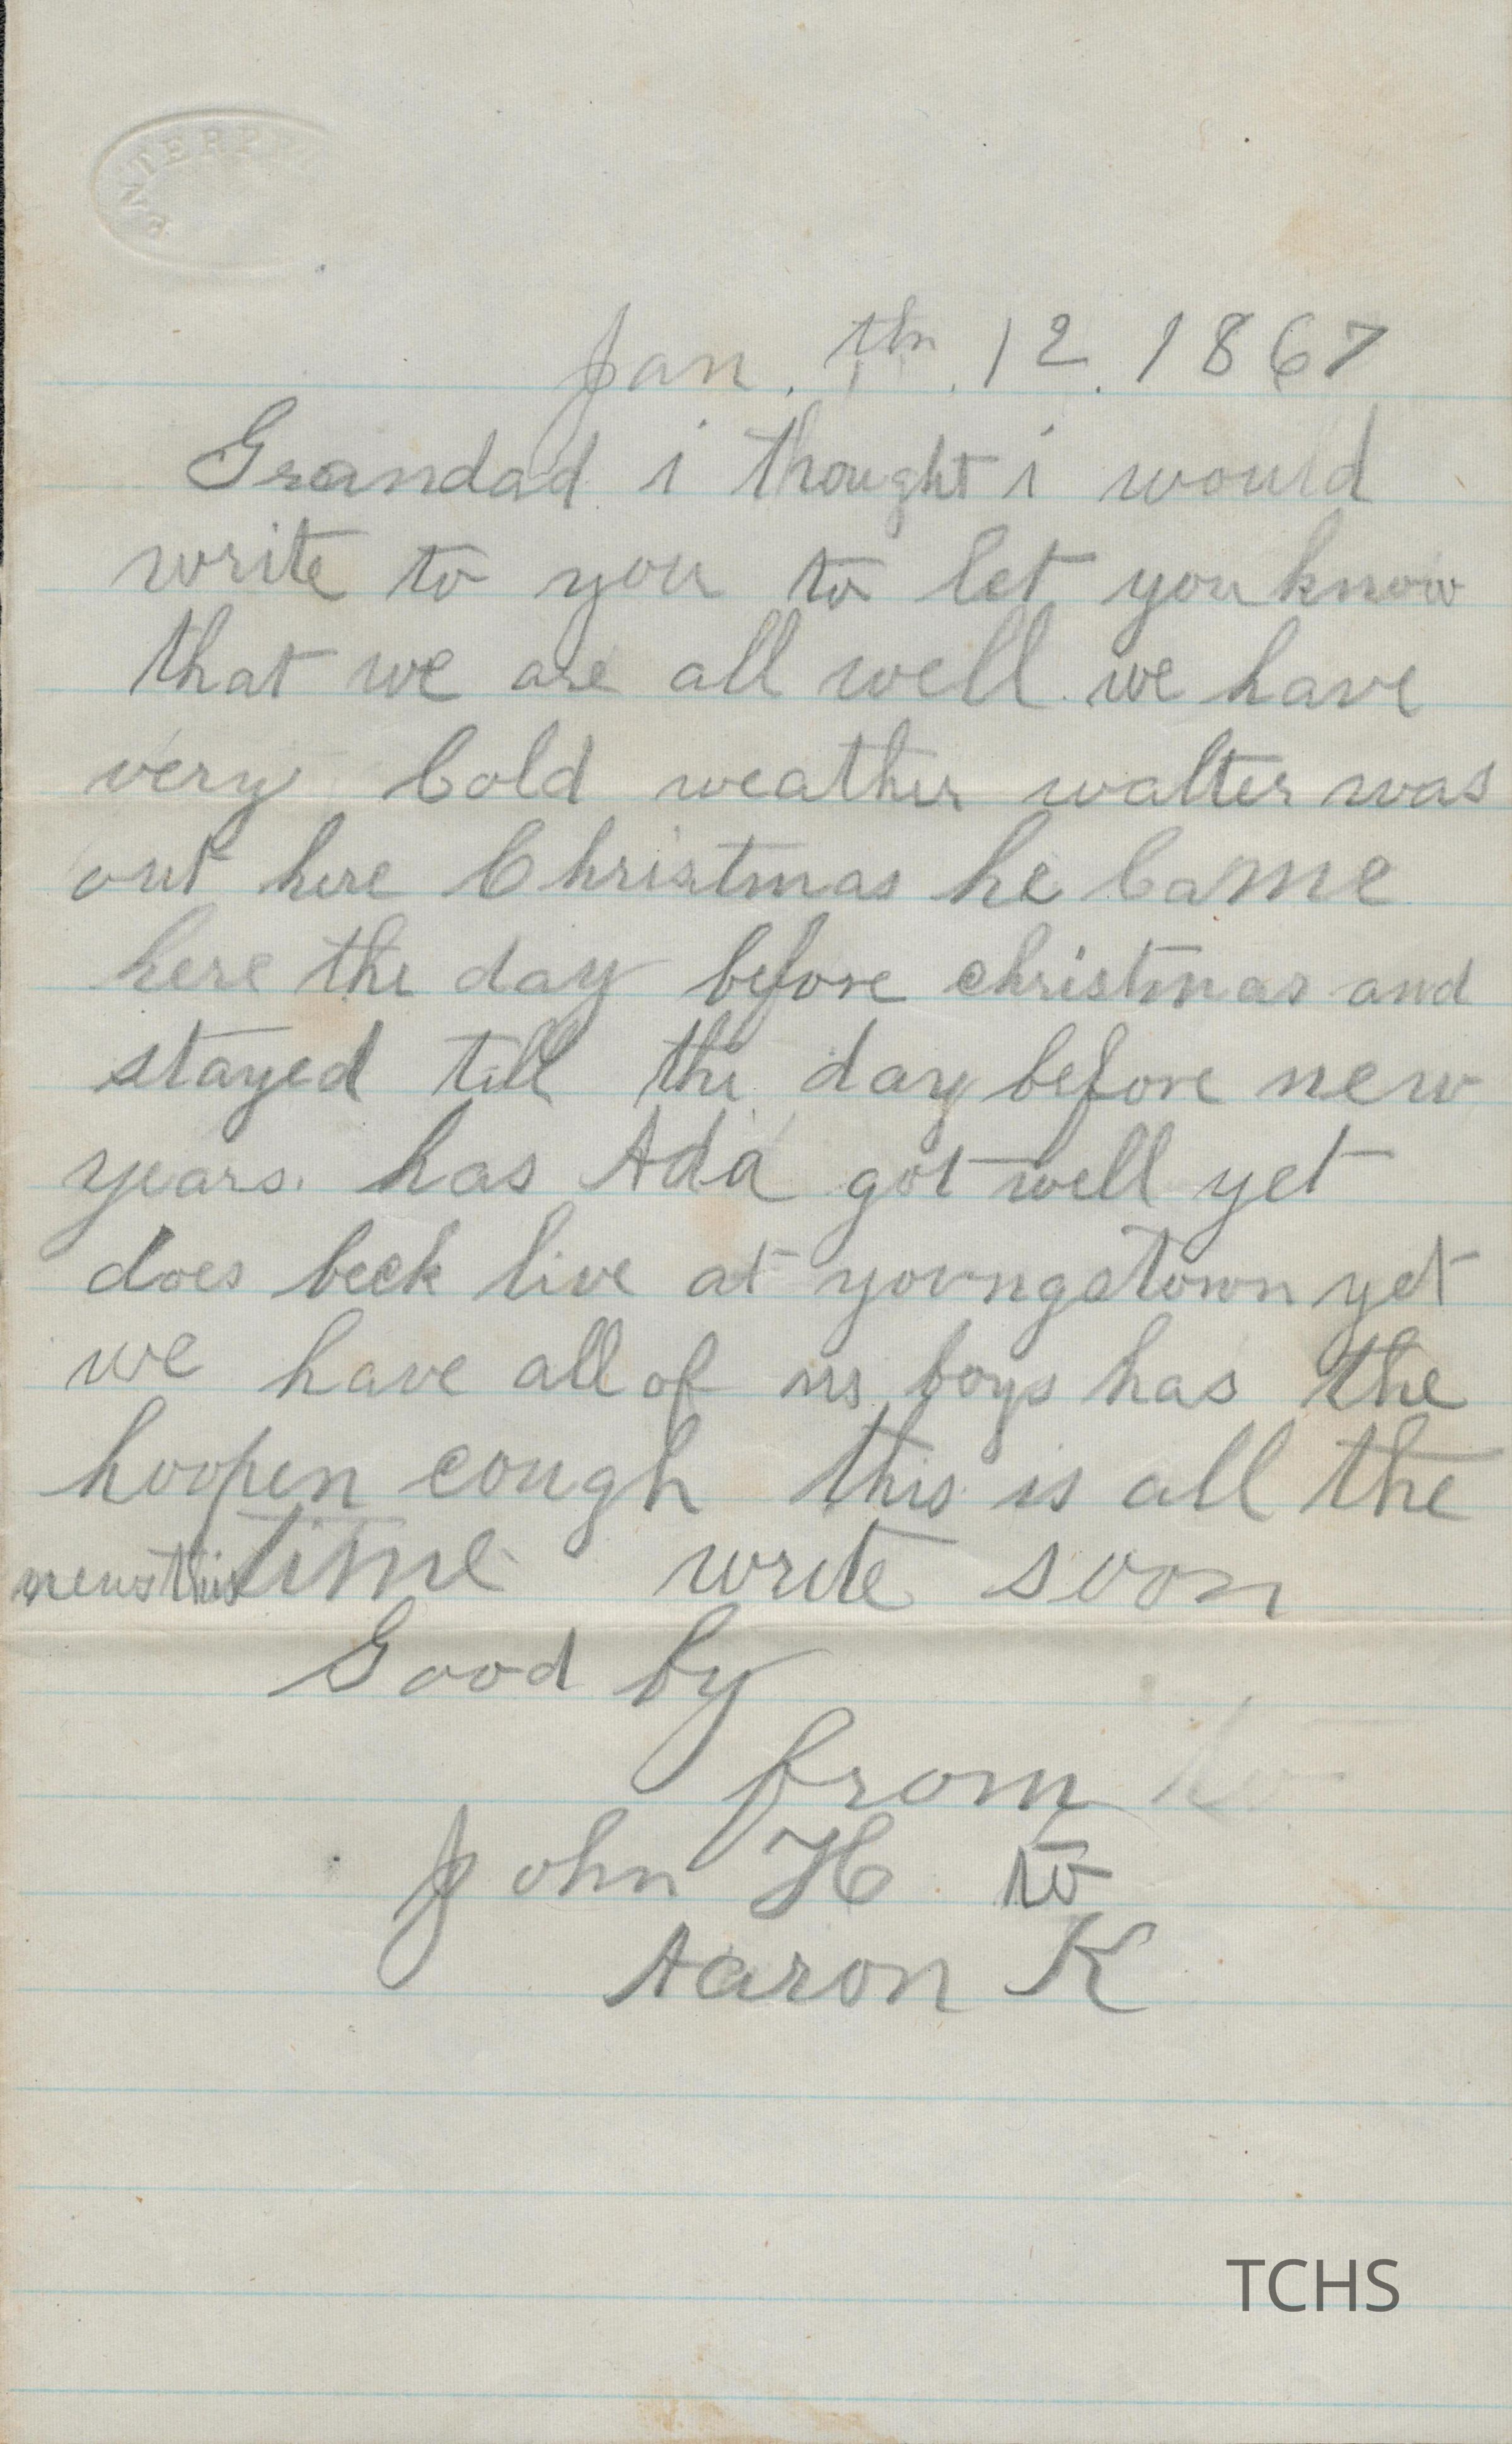 ENTERPRI
Jan. th. 12. 1867
Grandad i thought i would
write to you to let you know
that we are all well we have
very Cold weather walter was
out here Christmas he Came
here the day before christmas and
stayed till the day before new
years. has Ada got well yet
does beck live at youngstown yet
we have all of us boys has the
hoopen cough this is all the
news this time write soon
Good by
from
John H to
Aaron K
TCHS